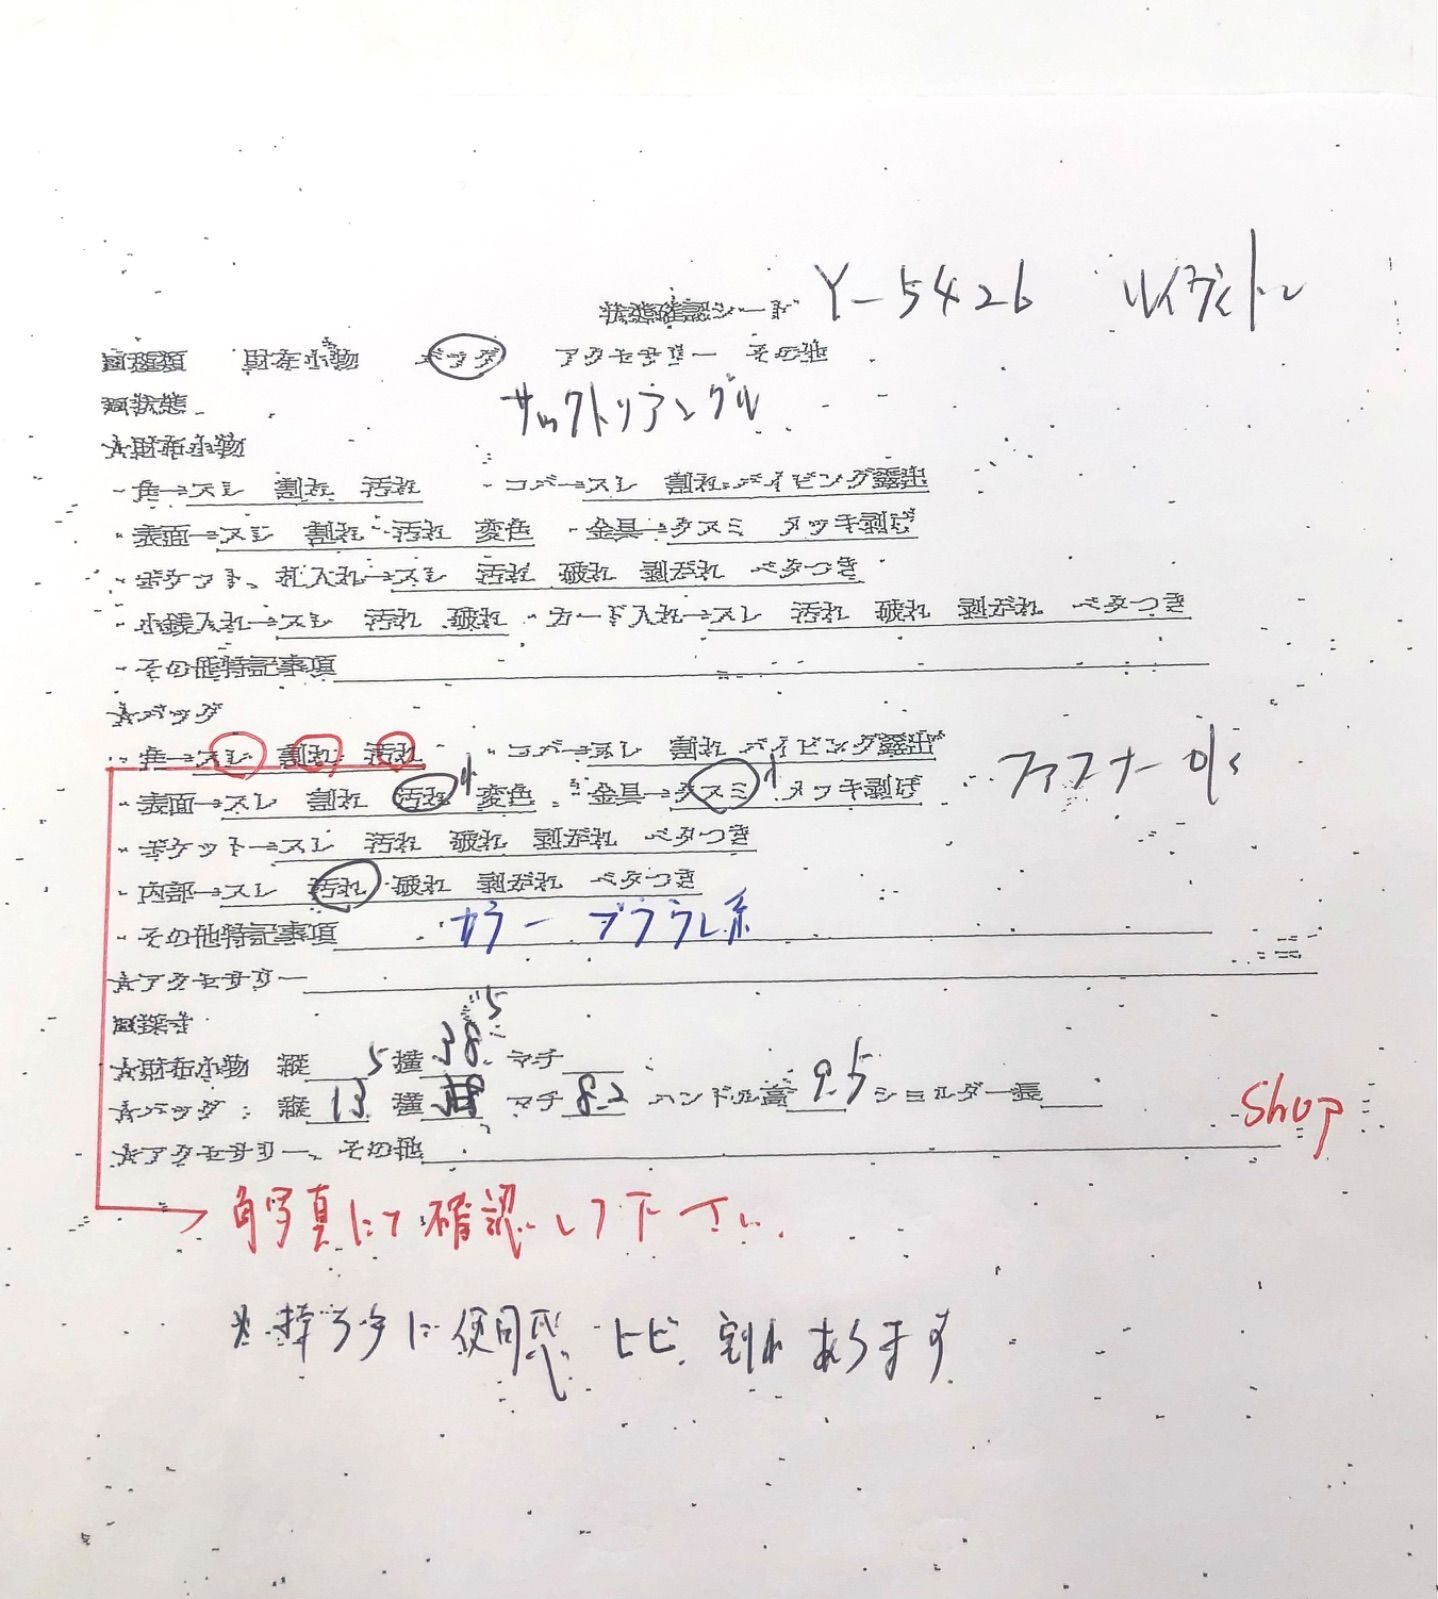 状態確認シード Y-5426 ルイヴィトン
■種類 財布小物 バッグ アクセサリー その他
■状態 サックトリアングル
☆財布小物
・角→スレ 割れ 汚れ ・コバ→スレ 割れ パイピング露出
・表面→スレ 割れ 汚れ 変色 ・金具→クスミ メッキ剥げ
・ポケット、札入れ→スレ 汚れ 破れ 剥がれ ベタつき
・小銭入れ→スレ 汚れ 破れ ・カード入れ→スレ 汚れ 破れ 剥がれ ベタつき
・その他特記事項
☆バッグ
・角→スレ 割れ 汚れ ・コバ→スレ 割れ パイピング露出 ファスナー
・表面→スレ 割れ 汚れ 小 変色 ・金具→クスミ 小 メッキ剥げ
・ポケット→スレ 汚れ 破れ 剥がれ ベタつき
・内部→スレ 汚れ 破れ 剥がれ ベタつき
・その他特記事項 カラー ブラウン系
☆アクセサリー
■採寸
☆財布小物 縦 5 横 38.5 マチ
☆バッグ：縦 13 横 マチ 8.2 ハンドル高 9.5 ショルダー長
Shop
☆アクセサリー、その他
角写真にて確認して下さい.
に使用感 ヒビ. 割れあります